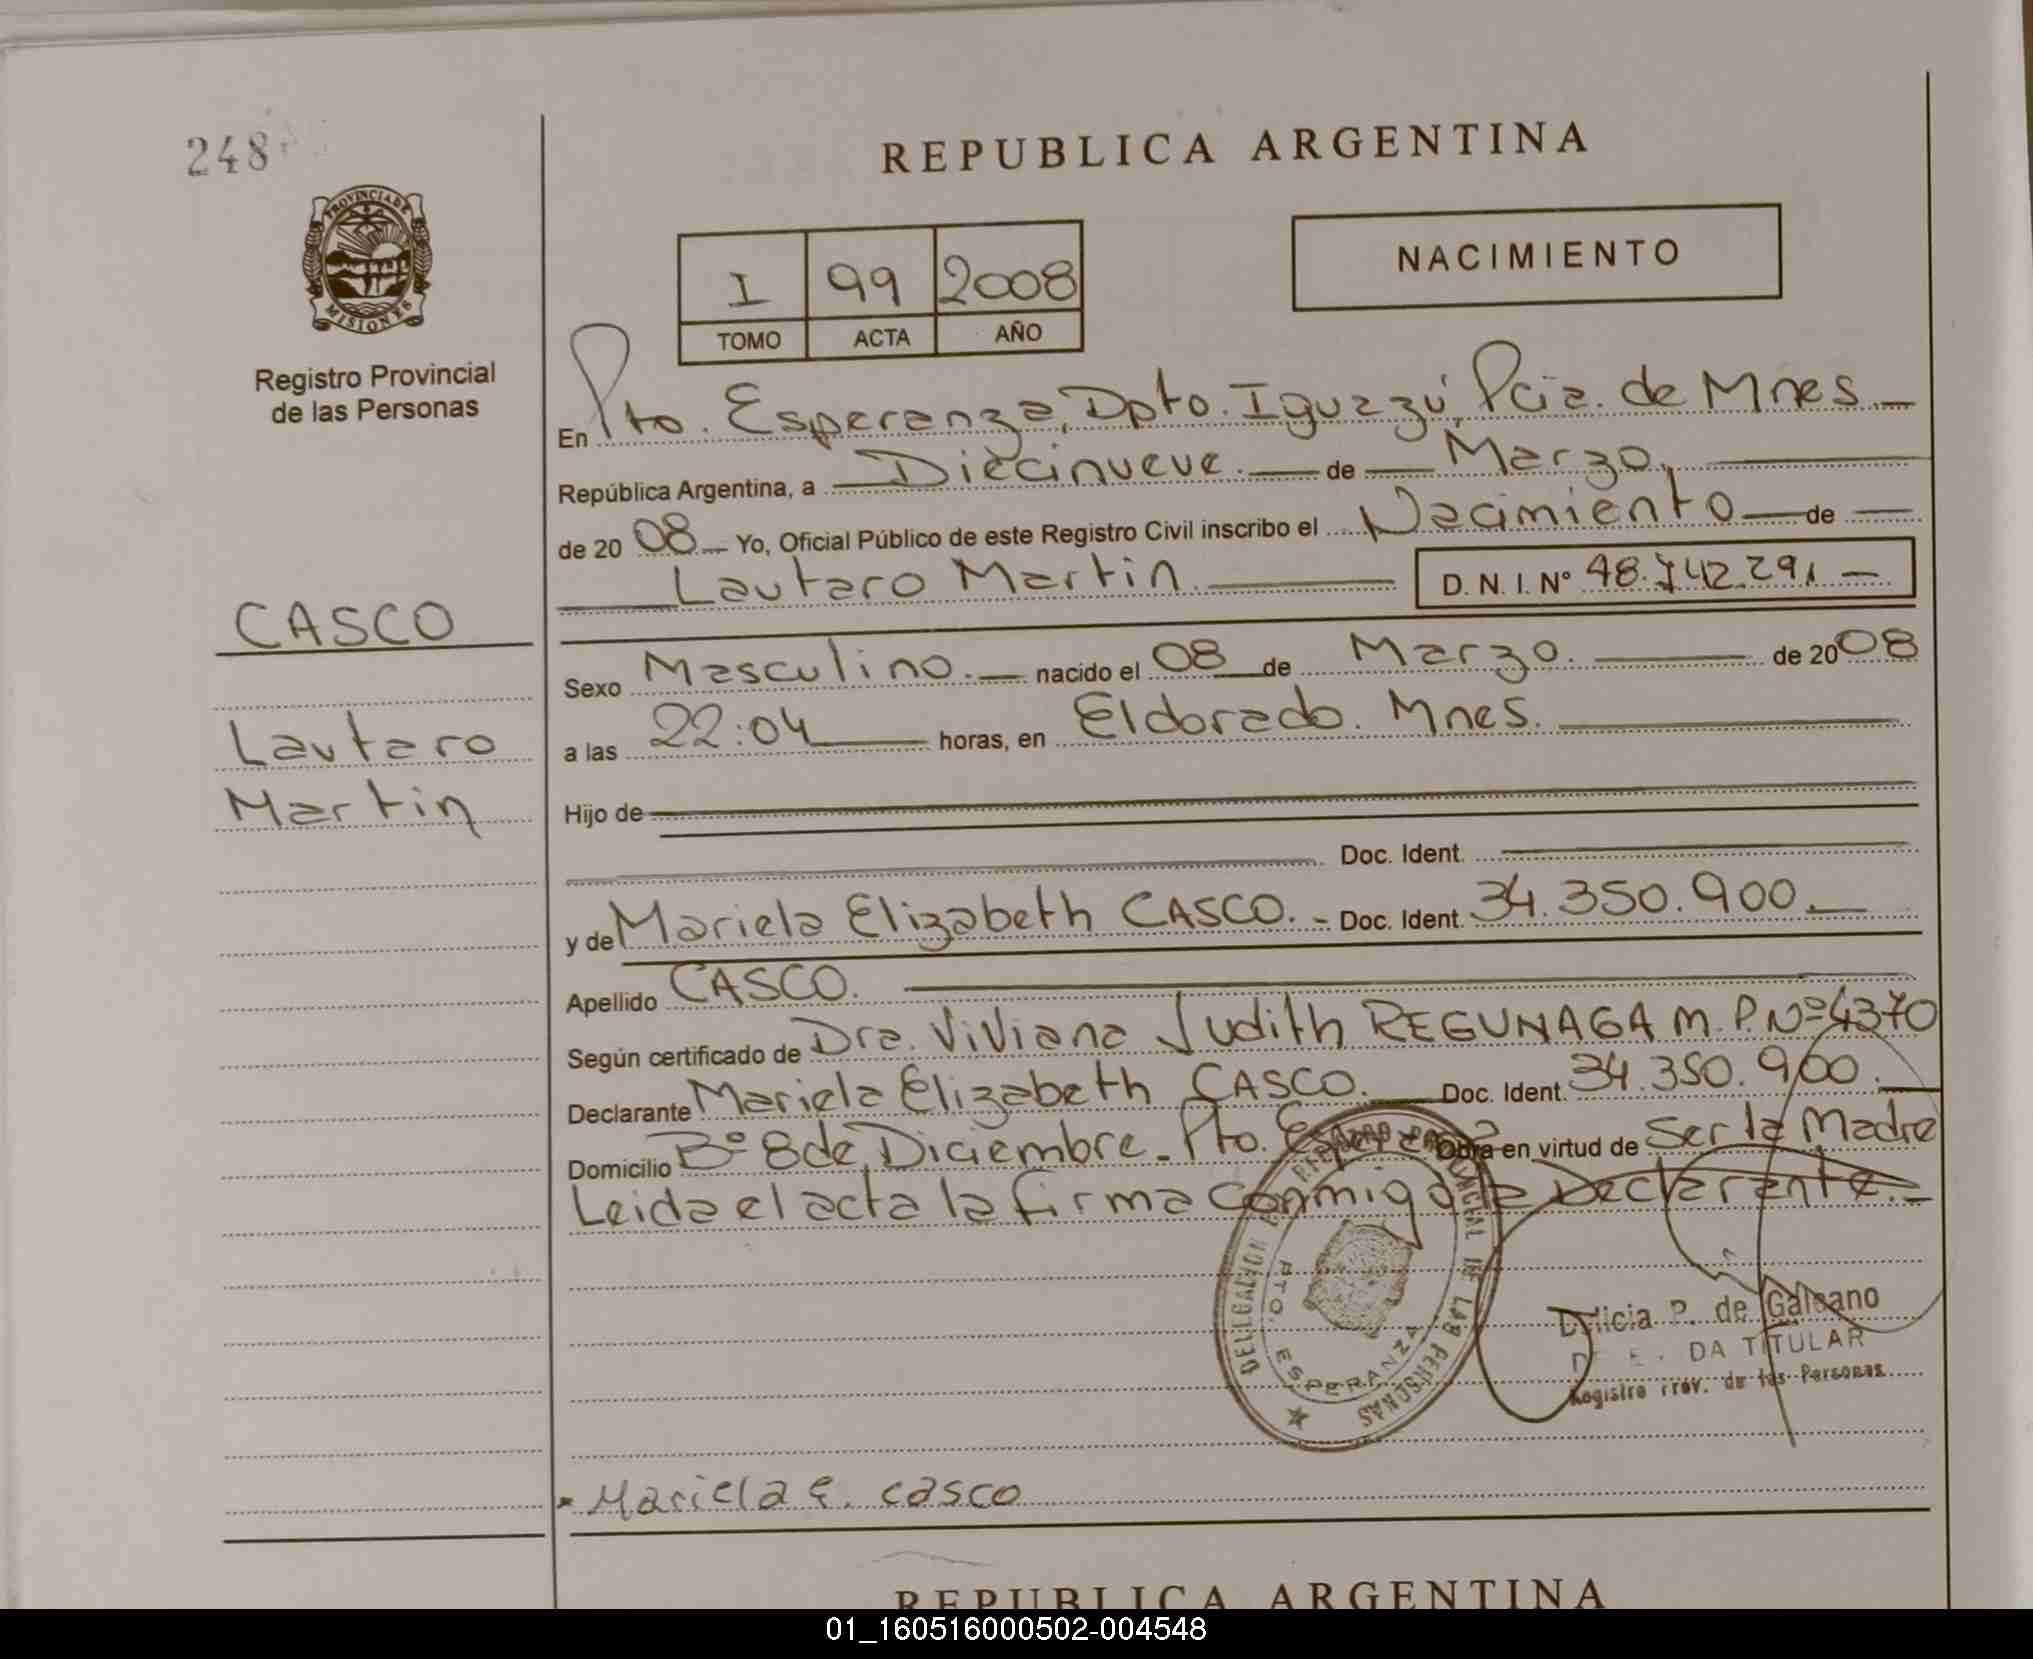 248
PROVINCIA DE
MISIONES
Registro Provincial
de las Personas
CASCO
Lautaro
Martin
REPUBLICA ARGENTINA
I 99 2008
TOMO ACTA AÑO
NACIMIENTO
En Pto. Esperanza, Dpto. Iguazú, Pcia. de Mnes.
República Argentina, a Diecinueve. de Marzo,
de 20 08 Yo, Oficial Público de este Registro Civil inscribo el Nacimiento de
Lautaro Martin. D. N. I. N° 48.742.291
Sexo Masculino. nacido el 08 de Marzo. de 2008
a las 22:04 horas, en Eldorado. Mnes.
Hijo de
Doc. Ident.
y de Mariela Elizabeth CASCO. - Doc. Ident. 34.350.900.
Apellido CASCO.
Según certificado de Dra. Viviana Judith REGUNAGA M.P.Nº4370
Declarante Mariela Elizabeth CASCO. Doc. Ident. 34.350.900.
Domicilio Bº 8 de Diciembre. Pto. Obra en virtud de Ser la Madre
Leida el acta la firma conmigo la Declarante.
PTO. ESPERANZA
P. de Galeano
TITULAR
Registro Prov. de las Personas
Mariela E. casco
REPUBLICA ARGENTINA
01_160516000502-004548